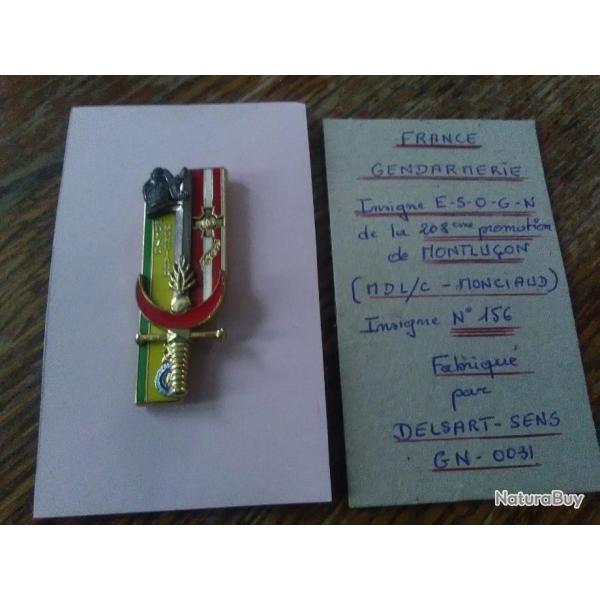 FRANCE
GENDARMERIE
Insigne E-S-O-G-N
de la 208ème promotion
de MONTLUÇON
(MDL/C - MONCIAUD)
Insigne N° 156
Fabriqué
par
DELSART-SENS
GN-0031
NaturaBuy